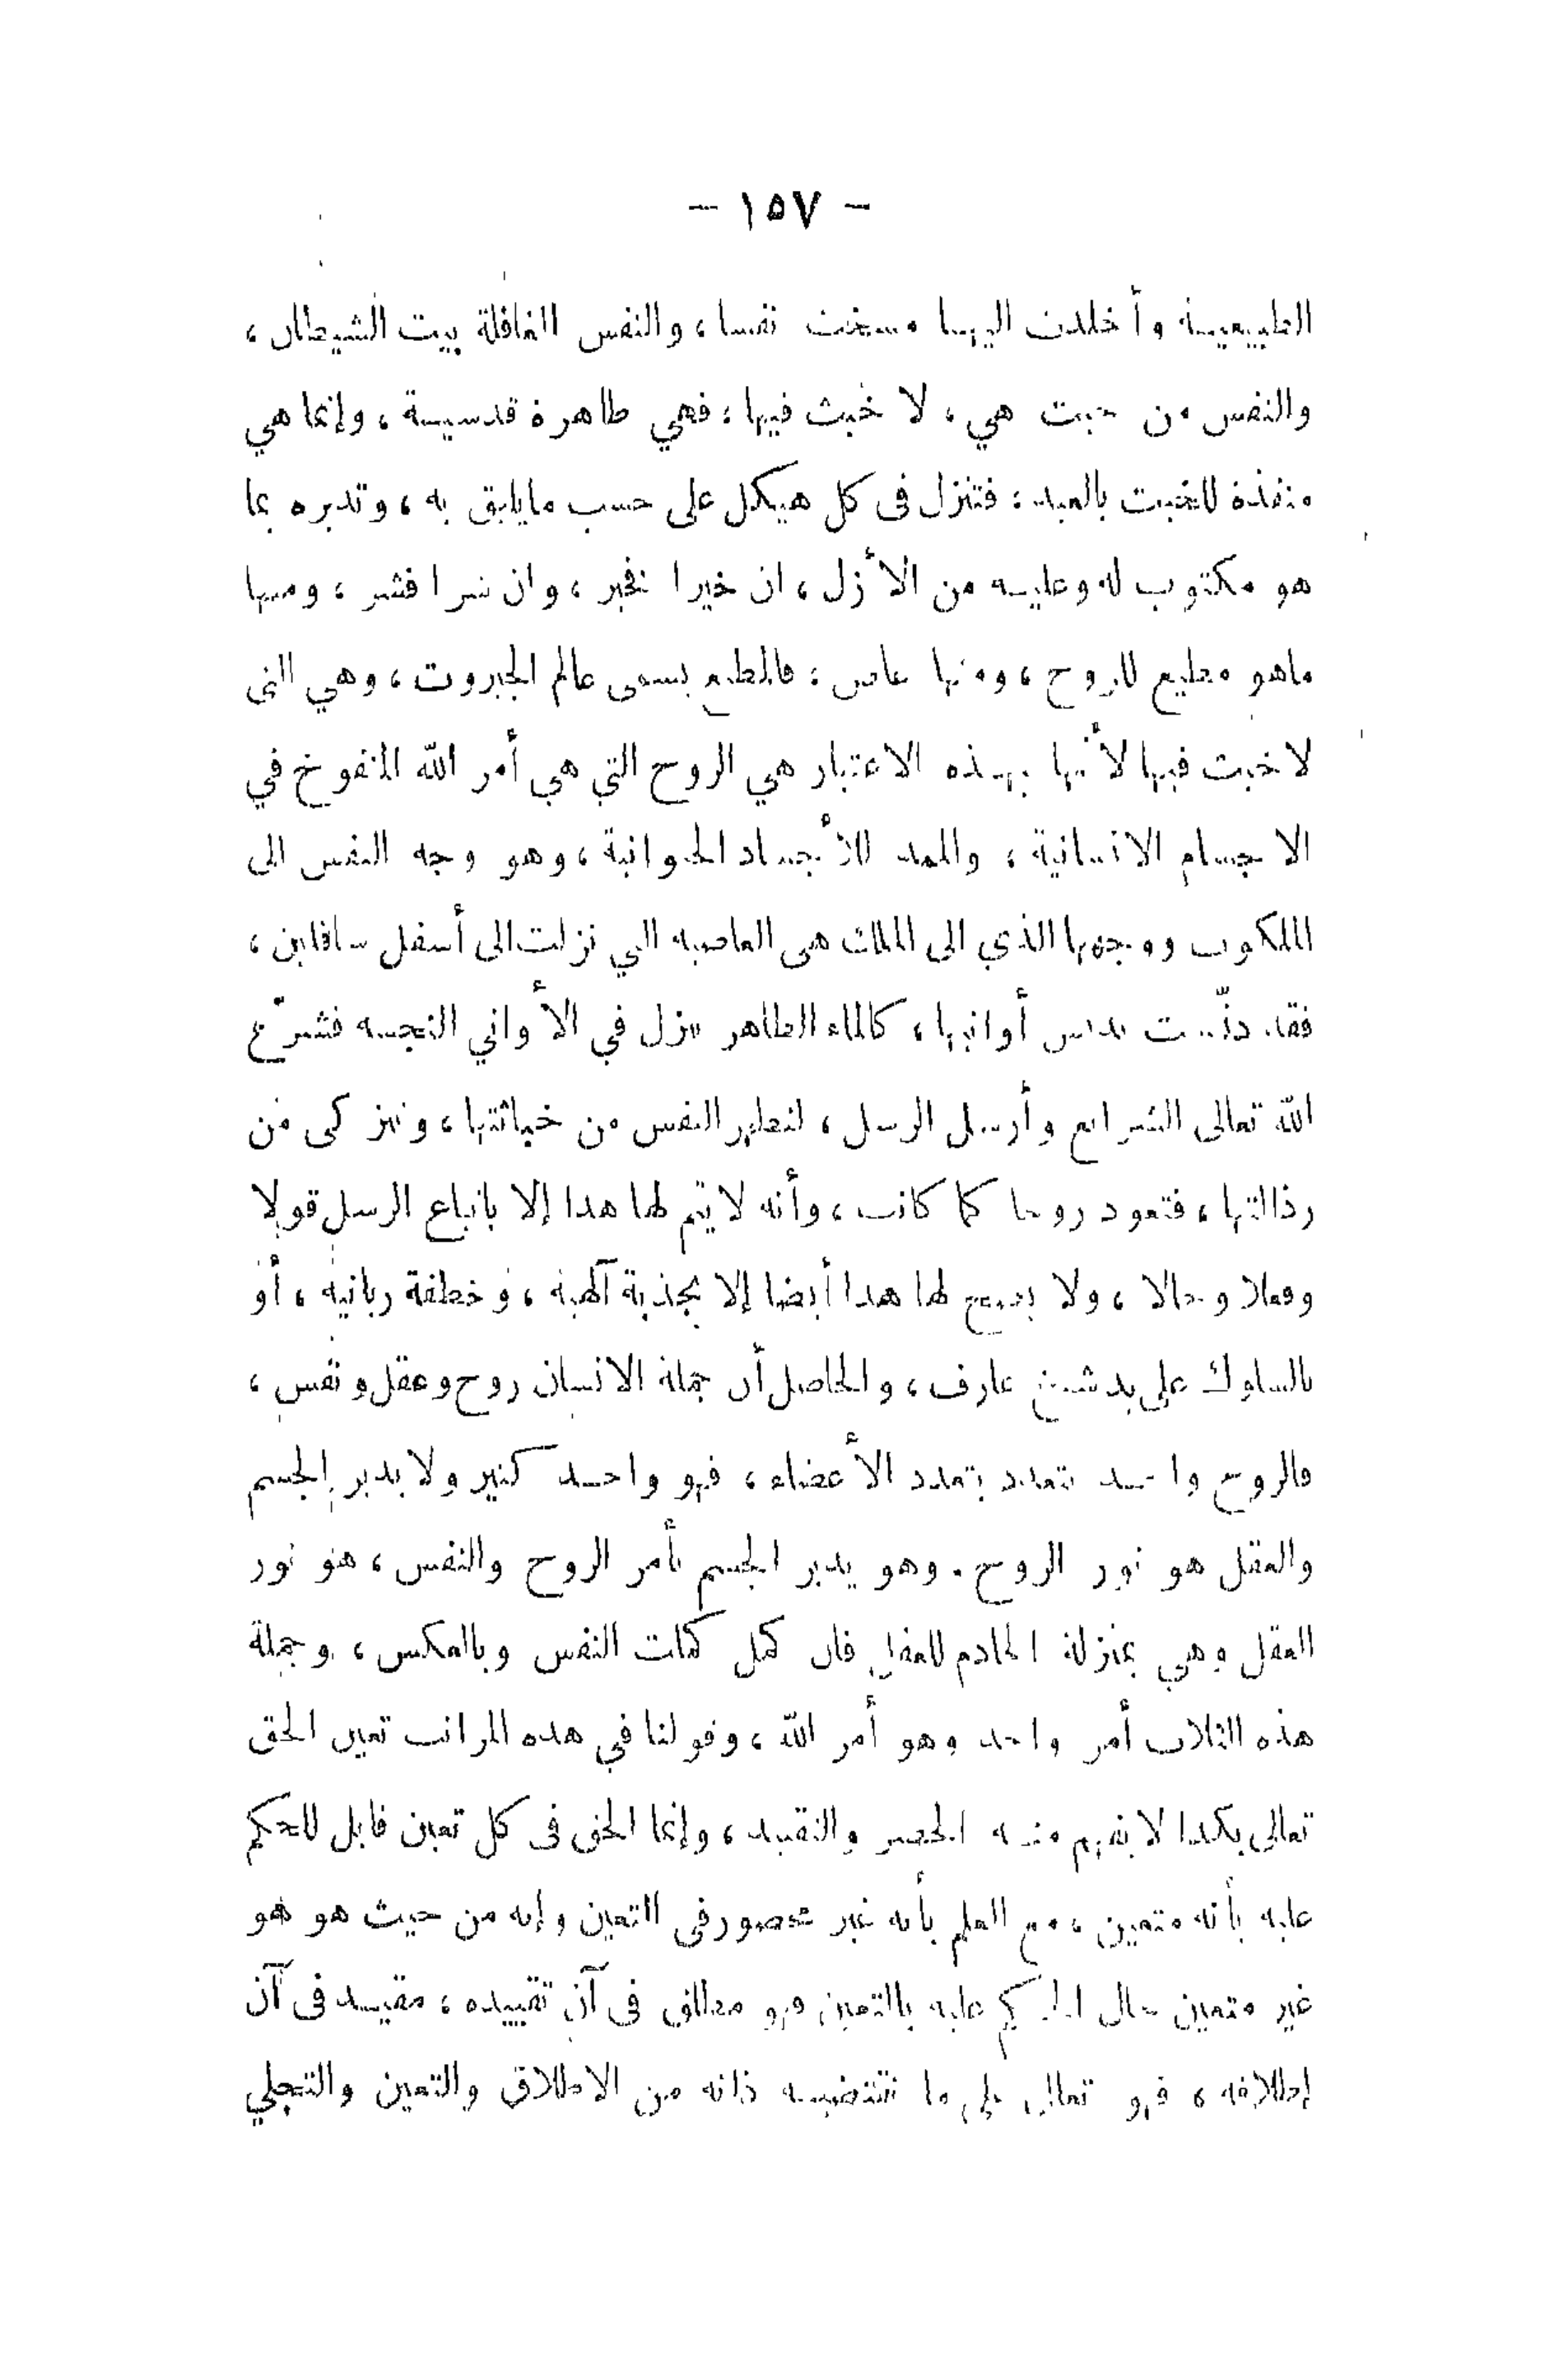 - ١٥٧ -
الطبيعية وأخلدت اليها وسخت نفسا، والنفس الغافلة بيت الشيطان،
والنفس من حيث هي، لا خبث فيها، فهي طاهرة قدسية، وإنما هي
منفذة للخبث بالعبد، فتنزل فى كل هيكل على حسب مايليق به، وتدبره بما
هو مكتوب له وعليه من الأزل، ان خيرا فخير، وان شرا فشر، ومنها
ماهو مطيع للروح، ومنها عاص، فالمطيع يسمى عالم الجبروت، وهي التى
لا خبث فيها لأنها بهذه الاعتبار هي الروح التي هي أمر الله المنفوخ في
الاجسام الانسانية، والممد للأجساد الحيوانية، وهو وجه النفس الى
الملكوت ووجهها الذي الى الملك هى العاصية التي نزلت الى أسفل سافلين،
فقد دنّست بدنس أوانيها، كالماء الطاهر ينزل في الأواني النجسه فشرّع
الله تعالى الشرائع وأرسل الرسل، لتطهر النفس من خباثتها، وتزكى من
رذالتها، فتعود روحا كما كانت، وأنه لا يتم لها هذا إلا باتباع الرسل قولا
وفعلا وحالا، ولا يصح لها هذا أيضا إلا بجذبة آلهية، وخطفة ربانية، أو
بالسلوك على يد شيخ عارف، والحاصل أن جملة الانسان روح وعقل ونفس،
فالروح واحد تتعدد بتعدد الأعضاء، فهو واحد كثير ولا يدبر الجسم
والعقل هو نور الروح. وهو يدبر الجسم بأمر الروح والنفس، هو نور
العقل وهي بمنزلة الخادم للعقل فان كمل كملت النفس وبالعكس، وجملة
هذه الثلاث أمر واحد وهو أمر الله، وقولنا في هذه المراتب تعين الحق
تعالى بكذا لا يفهم منه الحصر والتقييد، وإنما الحق فى كل تعين قابل للحكم
عليه بأنه متعين، مع العلم بأنه غير محصور فى التعين وإنه من حيث هو هو
غير متعين حال الحكم عليه بالتعين فهو مطلق فى آن تقييده، مقيد فى آن
إطلاقه، فهو تعالى على ما تقتضيه ذاته من الاطلاق والتعين والتجلي